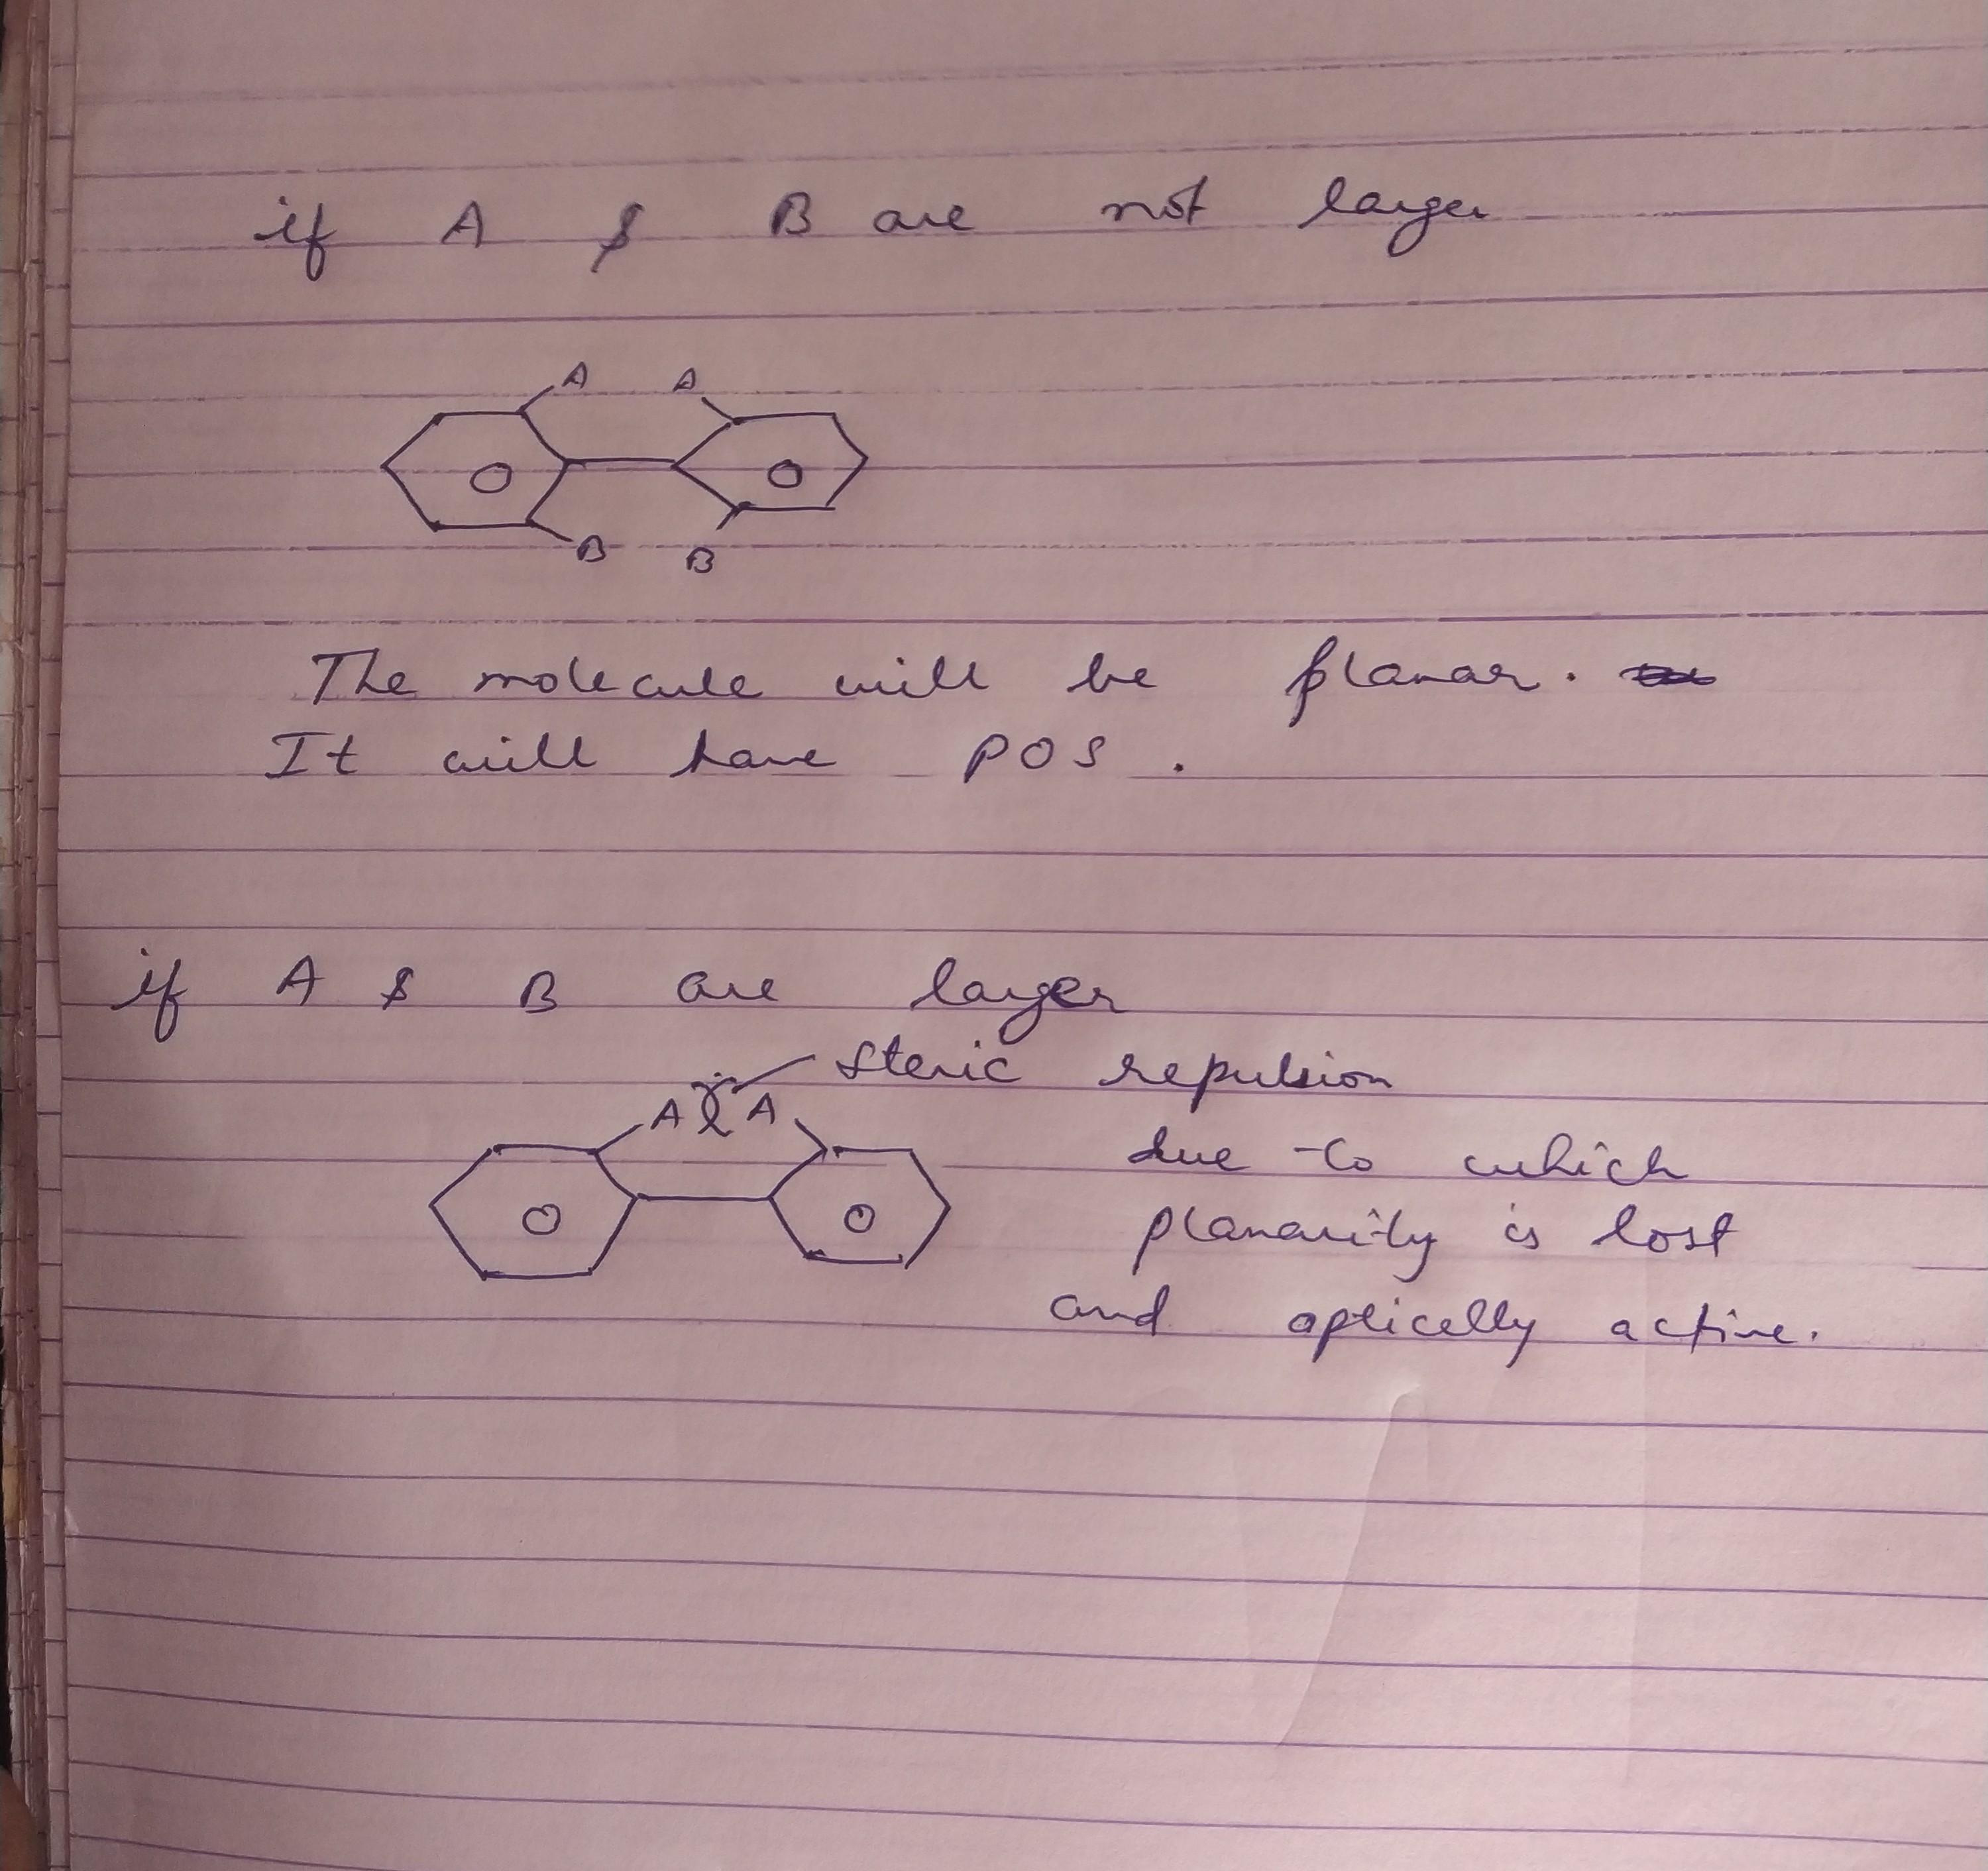 if A & B are not larger
A A
B B
The molecule will be planar.
It will have POS.
if A & B are larger
steric repulsion
A A
due to which
planarity is lost
and optically active.